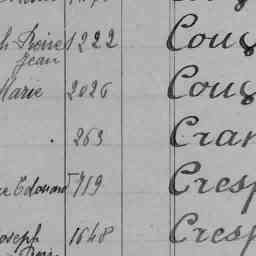 h Pierre 1222 Coug
Jean
Marie 2026 Coug
263 Cran
Edouard 1719 Cresp
Joseph 1648 Cresp